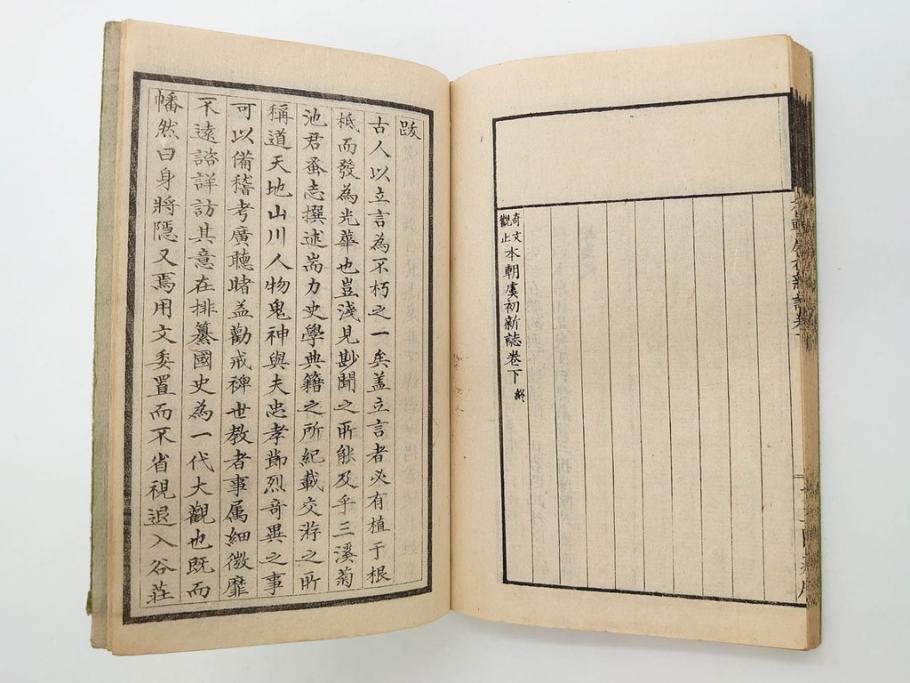 奇文觀止本朝虞初新誌卷下 終
跋
古人以立言為不朽之一矣盖立言者必有植于根
柢而發為光華也豈淺見尠聞之所能及乎三溪菊
池君蚤志撰述耑力史學典籍之所紀載交游之所
稱道天地山川人物鬼神與夫忠孝節烈奇異之事
可以備稽考廣聽睹盖勸戒裨世教者事属細微靡
不遠諮詳訪其意在排纂國史為一代大觀也既而
幡然曰身將隱又焉用文委置而不省視退入谷莊